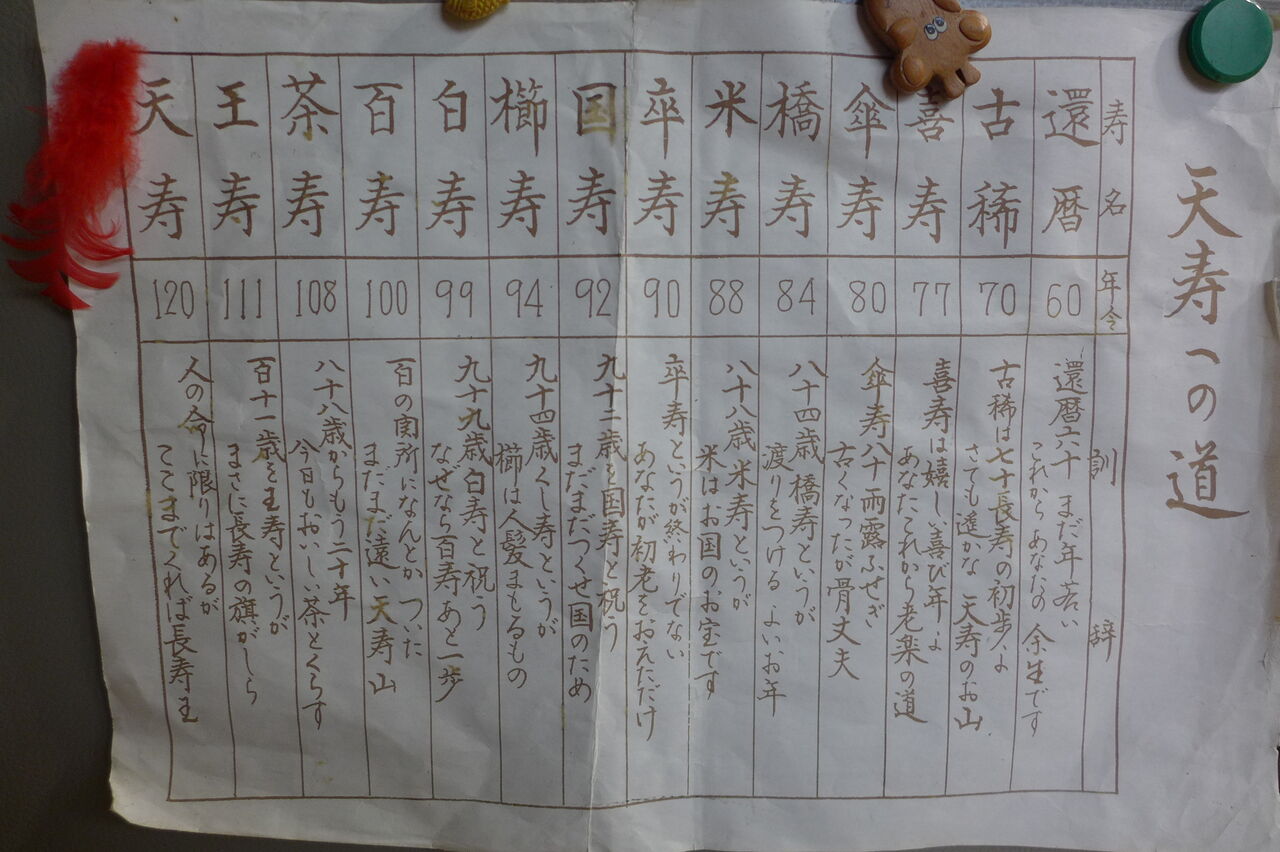 天寿への道
寿名
年令
訓辞
還暦
60
還暦六十 まだ年若い
これからあなたの 余生です
古稀
70
古稀は七十長寿の初歩よ
さても遙かな 天寿のお山
喜寿
77
喜寿は嬉しい喜び年よ
あなたこれから老楽の道
傘寿
80
傘寿八十雨露ふせぎ
古くなったが骨丈夫
橋寿
84
八十四歳 橋寿というが
渡りをつける よいお年
米寿
88
八十八歳米寿というが
米はお国のお宝です
卒寿
90
卒寿というが終わりでない
あなたが初老をおえただけ
国寿
92
九十二歳を国寿と祝う
まだまだつくせ国のため
櫛寿
94
九十四歳くし寿というが
櫛は人髪まもるもの
白寿
99
九十九歳白寿と祝う
なぜなら百寿あと一歩
百寿
100
百の関所になんとかついた
まだまだ遠い天寿山
茶寿
108
八十八歳からもう二十年
今日もおいしい茶とくらす
王寿
111
百十一歳を王寿というが
まさに長寿の旗がしら
天寿
120
人の命に限りはあるが
ここまでくれば長寿王